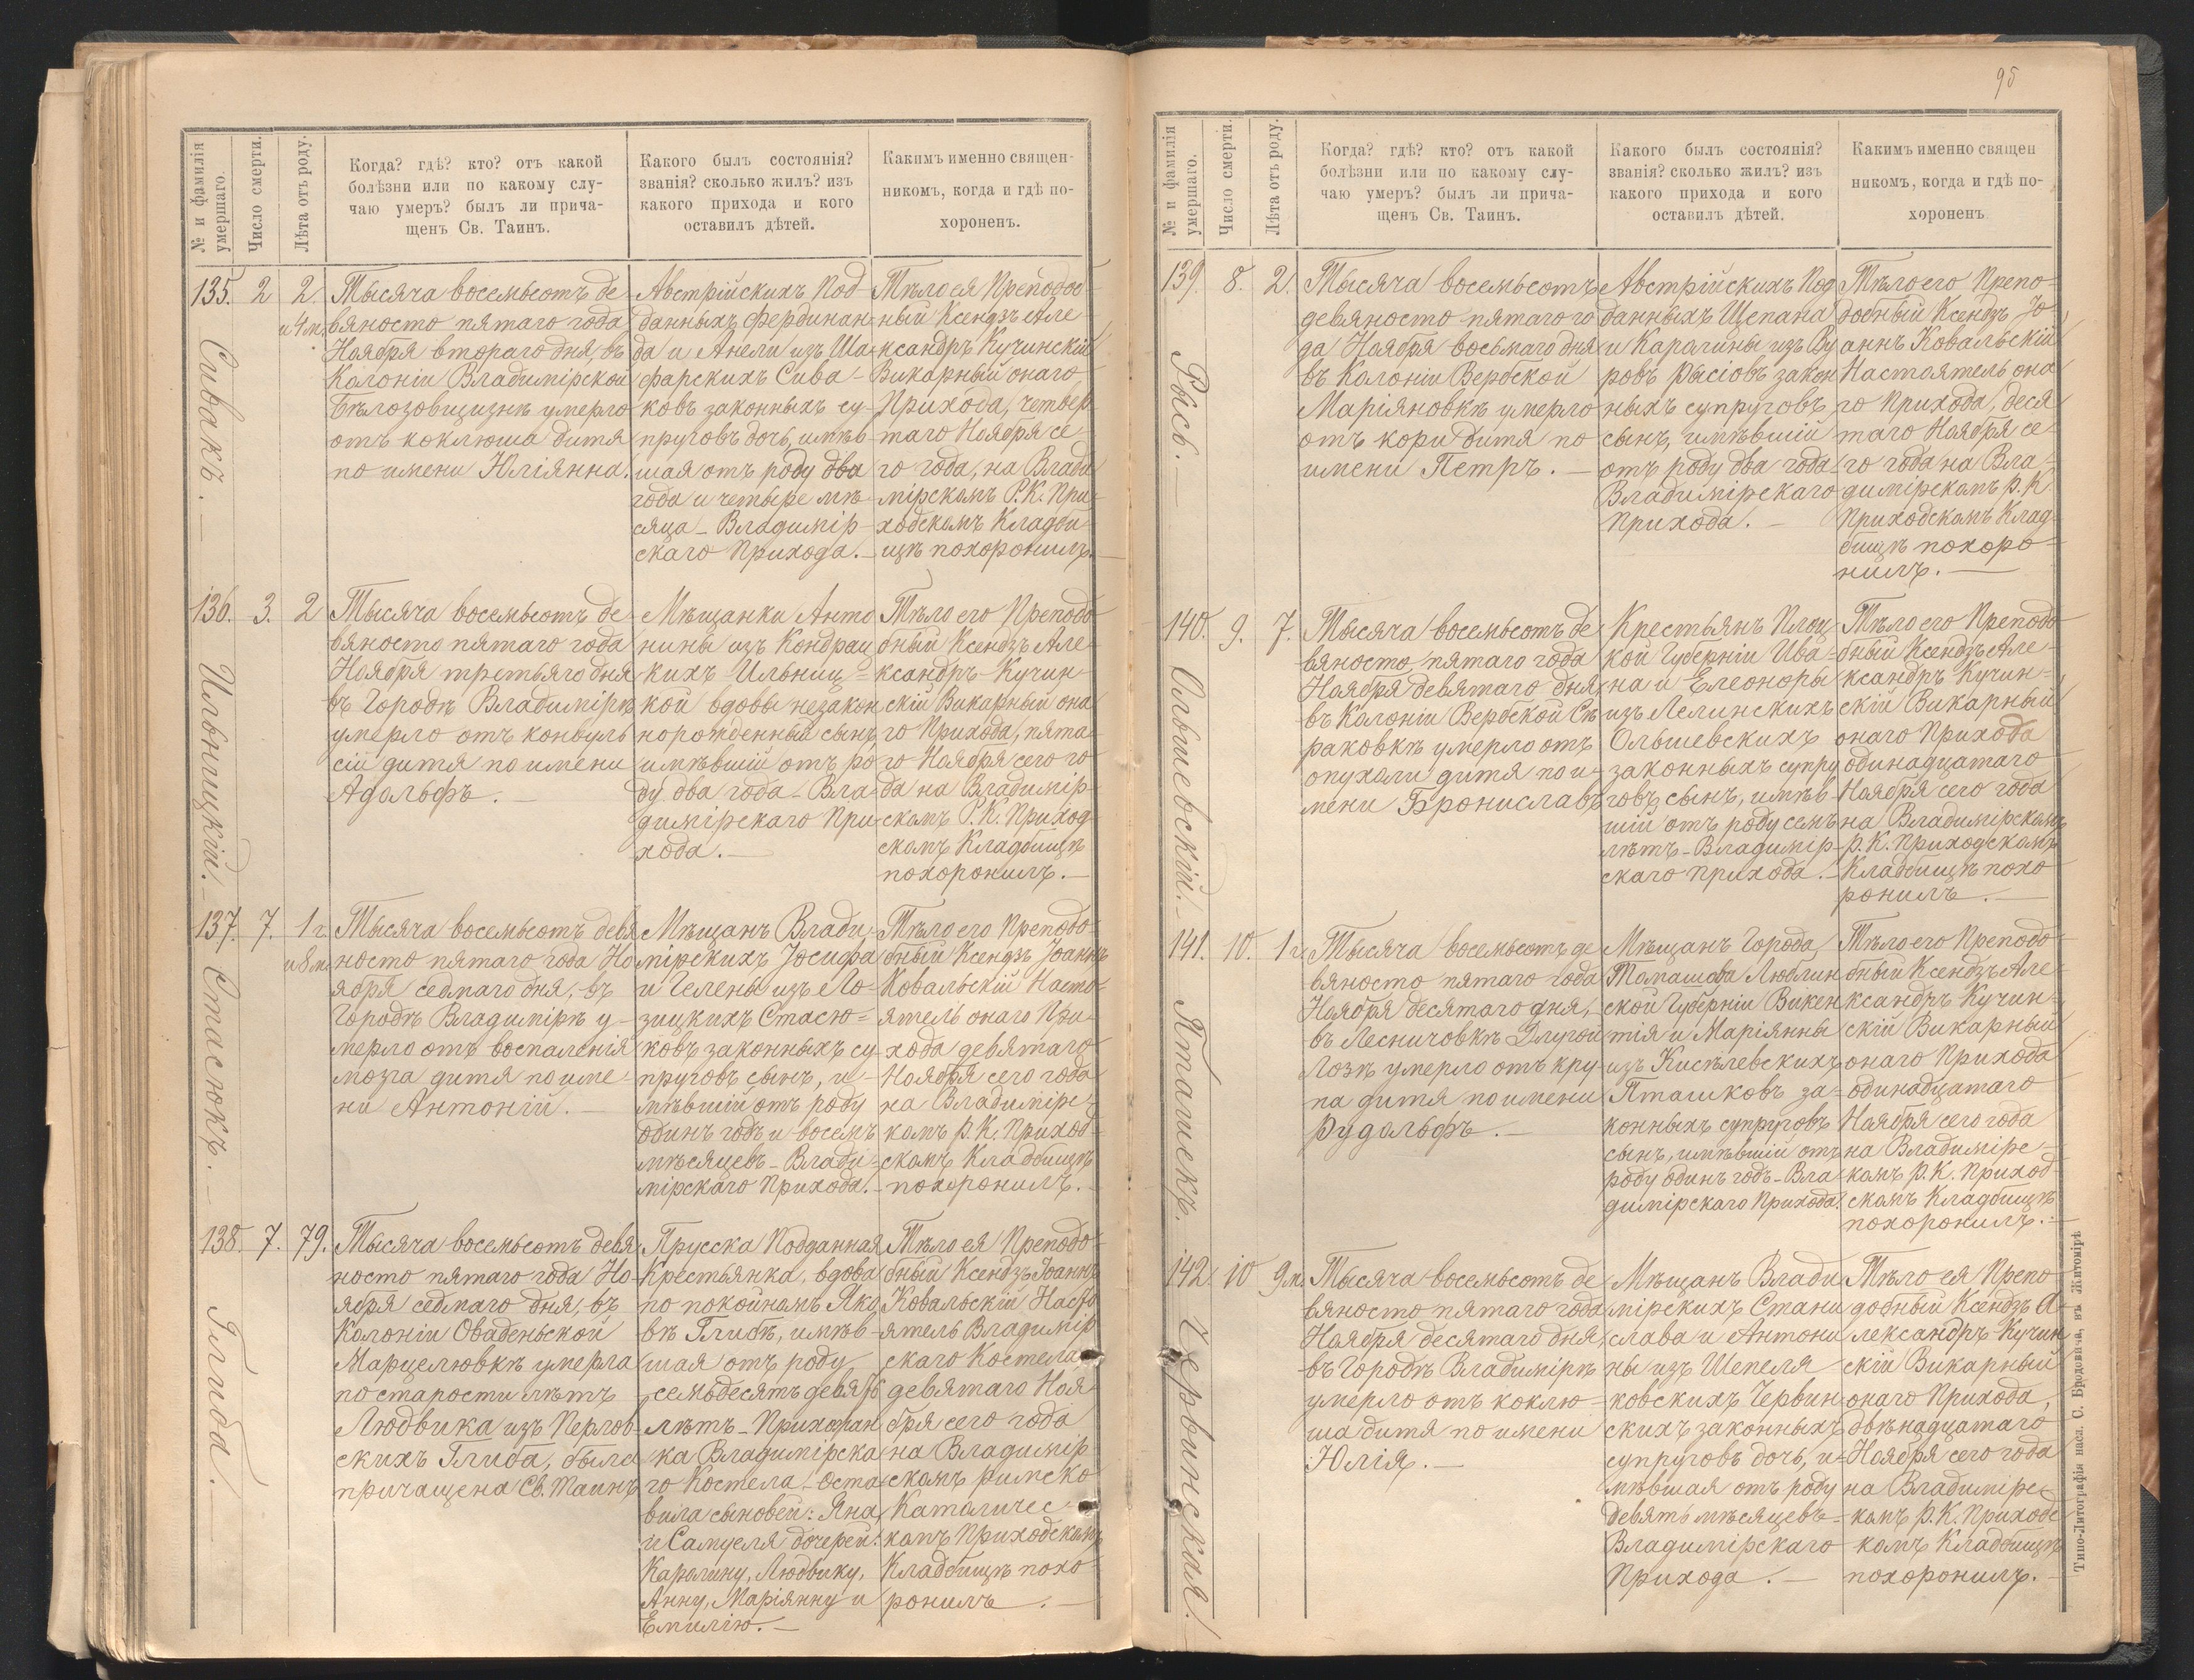 95
№ и фамилія умершаго.
Число смерти.
Лѣта отъ роду.
Когда? гдѣ? кто? отъ какой
болѣзни или по какому слу-
чаю умеръ? былъ ли прича-
щенъ Св. Таинъ.
Какого былъ состоянія?
званія? сколько жилъ? изъ
какого прихода и кого
оставилъ дѣтей.
Какимъ именно священ-
никомъ, когда и гдѣ по-
хороненъ.
135.
Сивакъ.
2
2.
и 4 м.
Тысяча восемьсотъ де
вяносто пятаго года
Ноября втораго дня, въ
Колоніи Владимірской
Бѣлозовщизнѣ умерло
отъ коклюша дитя
по имени Юліянна.
Австрійскихъ Под-
данныхъ Фердинан-
да и Анели изъ Ша-
фарскихъ Сива-
ковъ законныхъ су-
пруговъ дочь, имѣв-
шая отъ роду два
года и четыре мѣ-
сяца - Владимір-
скаго Прихода.-
Тѣло ея Преподоб-
ный Ксендзъ Але
ксандръ Кучинскій
Викарный онаго
Прихода, четвер-
таго Ноября се
го года, на Влади
мірскомъ Р. К. При-
ходскомъ Кладби-
щѣ похоронилъ.-
136.
Ильницкій.-
3.
2
Тысяча восемьсотъ де
вяносто пятаго года
Ноября третьяго дня
въ Городѣ Владимірѣ
умерло отъ конвуль
сій дитя по имени
Адольфъ.-
Мѣщанки Анто
нины изъ Кондрац
кихъ Ильниц-
кой вдовы незакон
норожденный сынъ,
имѣвшій отъ ро
ду два года - Вла-
димірскаго При-
хода.-
Тѣло его Преподо
бный Ксендзъ Але-
ксандръ Кучин-
скій Викарный она
го Прихода, пята-
го Ноября сего го
да на Владимір-
скомъ Р. К. Приход
скомъ Кладбищѣ
похоронилъ.-
137.
Стасюкъ.-
7.
1 г.
и 8 м.
Тысяча восемьсотъ девя
носто пятаго года Но
ября седмаго дня, въ
Городѣ Владимірѣ у-
мерло отъ воспаленія
мозга дитя по име-
ни Антоній.-
Мѣщанъ Влади-
мірскихъ Іосифа
и Гелены изъ Ло-
зицкихъ Стасю-
ковъ законныхъ су-
пруговъ сынъ, и-
мѣвшій отъ роду
одинъ годъ и восемь
мѣсяцевъ - Влади-
мірскаго Прихода.-
Тѣло его Преподо-
бный Ксендзъ Іоаннъ
Ковальскій Насто-
ятель онаго При-
хода девятаго
Ноября сего года
на Владимірс-
комъ Р. К. Приход-
скомъ Кладбищѣ
похоронилъ.-
138.
Глиба.
7.
79.
Тысяча восемьсотъ девя
носто пятаго года Но-
ября седмаго дня, въ
Колоніи Оваденьской
Марцелювкѣ умерла
по старости лѣтъ
Людвика изъ Перлов-
скихъ Глиба, была
причащена Св. Таинъ
Прусска Подданная
Крестьянка, вдова
по покойномъ Яко
вѣ Глибѣ, имѣв-
шая отъ роду
семьдесятъ девять
лѣтъ - Прихожан
ка Владимірска
го Костела - Оста
вила сыновей: Яна
и Самуеля дочерей:
Каролину, Людвику,
Анну, Маріянну и
Емилію.-
Тѣло ея Преподо-
бный Ксендзъ Іоаннъ
Ковальскій Насто
ятель Владимір
скаго Костела
девятаго Ноя-
бря сего года
на Владимір-
скомъ Римско
Католичес-
комъ Приходскомъ
Кладбищѣ похо
ронилъ.-
№ и фамилія умершаго.
Число смерти.
Лѣта отъ роду.
Когда? гдѣ? кто? отъ какой
болѣзни или по какому слу-
чаю умеръ? былъ ли прича-
щенъ Св. Таинъ.
Какого былъ состоянія?
званія? сколько жилъ? изъ
какого прихода и кого
оставилъ дѣтей.
Какимъ именно священ
никомъ, когда и гдѣ по-
хороненъ
139.
Рысь.-
8.
2.
Тысяча восемьсотъ
девяносто пятаго го
да Ноября восьмаго дня
въ Колоніи Вербской
Маріяновкѣ умерло
отъ кори дитя по
имени Петръ.-
Австрійскихъ Под
данныхъ Щепана
и Каролины изъ Ву
ровъ Рысіовъ закон
ныхъ супруговъ
сынъ, имѣвшій
отъ роду два года-
Владимірскаго
Прихода.-
Тѣло его Препо-
добный Ксендзъ Іо-
аннъ Ковальскій
Настоятель она
го Прихода, деся
таго Ноября се
го года на Вла-
димірскомъ Р. К.
Приходскомъ Клад-
бищѣ похоро-
нилъ.-
140.
Ольшевскій.-
9.
7.
Тысяча восемьсотъ де
вяносто пятаго года
Ноября девятаго дня
въ Колоніи Вербской Сѣ
раковкѣ умерло отъ
опухоли дитя по и-
мени Брониславъ
Крестьянъ Плоц
кой Губерніи Ива-
на и Елеоноры
изъ Лелинскихъ
Ольшевскихъ
законныхъ супру
говъ сынъ, имѣв-
шій отъ роду семь
лѣтъ - Владимір-
скаго прихода.-
Тѣло его Преподо
бный Ксендзъ Але-
ксандръ Кучин-
скій Викарный
онаго Прихода
одинадцатаго
Ноября сего года
на Владимірскомъ
Р. К. Приходскомъ
Кладбищѣ похо
ронилъ.-
141.
Пташекъ.-
10.
1 г.
Тысяча восемьсотъ де
вяносто пятаго года
Ноября десятаго дня,
въ Лесничовкѣ Другой
Лозѣ умерло отъ кру-
па дитя по имени
Рудольфъ.-
Мѣщанъ Города
Томашова Люблин
ской Губерніи Викен
тія и Маріянны
изъ Кисѣлевскихъ
Пташковъ за-
конныхъ супруговъ
сынъ, имѣвшій отъ
роду одинъ годъ - Вла-
димірскаго Прихода.
Тѣло его Преподо
бный Ксендзъ Але-
ксандръ Кучин-
скій Викарный
онаго Прихода
одинадцатаго
Ноября сего года
на Владимірс-
комъ Р. К. Приход-
скомъ Кладбищѣ
похоронилъ.-
142.
Червинская.-
10
9 м.
Тысяча восемьсотъ де
вяносто пятаго года
Ноября десятаго дня,
въ Городѣ Владимірѣ
умерло отъ коклю-
ша дитя по имени
Юлія.-
Мѣщанъ Влади
мірскихъ Стани
слава и Антони
ны изъ Шепеля
ковскихъ Червин
скихъ законныхъ
супруговъ дочь, и-
мѣвшая отъ роду
девять мѣсяцевъ-
Владимірскаго
Прихода.-
Тѣло ея Препо
добный Ксендзъ А-
лександръ Кучин
скій Викарный
онаго Прихода,
двѣнадцатаго
Ноября сего года
на Владимірс-
комъ Р. К. Приходс
комъ Кладбищѣ
похоронилъ.-
Типо-Литографія насл. С. Бродовича, въ Житомірѣ